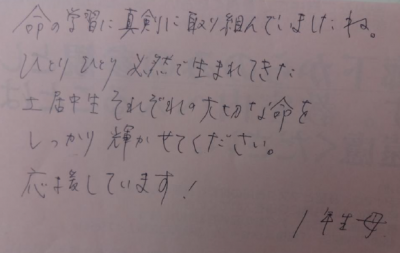 命の学習に真剣に取り組んでいましたね。
ひとりひとり必然で生まれてきた
土居中生それぞれの大切な命を
しっかり輝かせてください。
応援しています!
1年生母